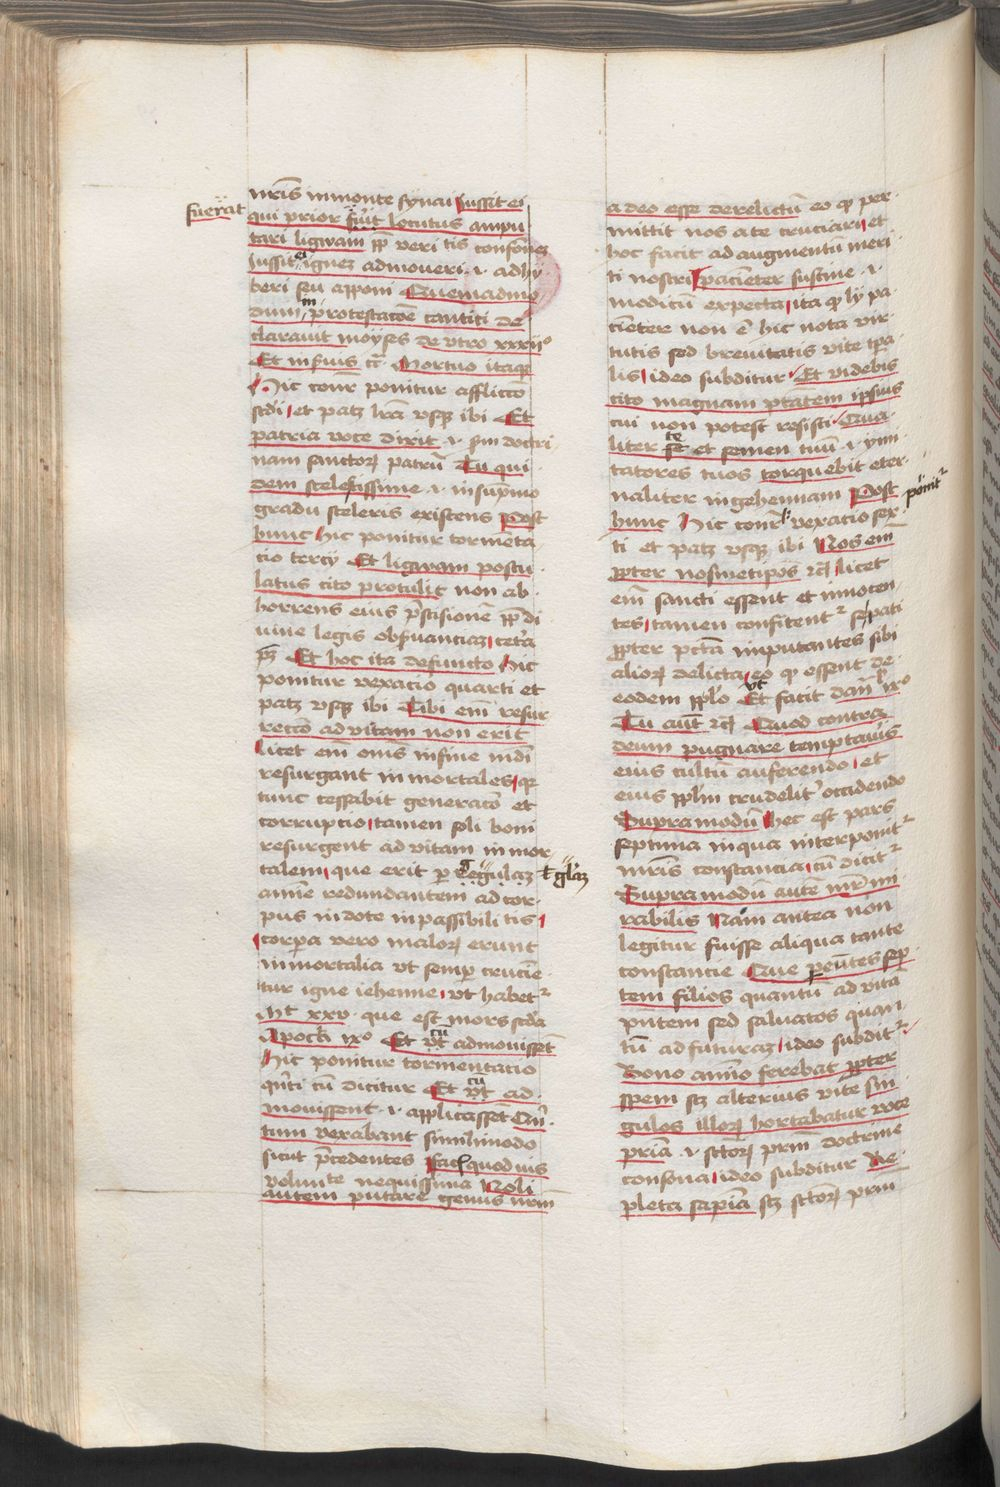 fuerat
nr̄is in monte synai Jussit ei
qui prior fuit locutus ampu
tari ligwam pp̄ veri tis confōnez
Jussit ei ignez admoveri ·i· adhy
beri seu apponi Quemadmo
dum in protestacōe cantici de
claravit moyses de vtro xxxijº
Et in s̄uis Mortuo itaqz
Hic conr̄ ponitur afflictō
scd̄i et patz lr̄a vsqz ibi Et
patria voce dixit ·i· sm doctri
nam sanctoꝝ patrū Tu qui
dem scelestissime ·i· in sup̄mo
gradu sceleris existens Post
hunc Hic ponitur tormēta
cio tercij Et ligwam postu
latus cito protulit non ab
horrens eius p̄scisionē pp̄ di
uine legis obs̄uanciaz cetͤa
pz Et hoc ita defuncto Hic
ponitur vexacio quarti et
patz vsqz ibi Tibi em̄ resur
reccō ad vitam non erit
licet em̄ om̄s in fine mdi
resurgant in mortales qz
tunc cessabit generacō et
corrupcio tamen soli boni
resurgent ad vitam in mor
talem que erit p regulaz t glāz
anime redundantem ad cor
pus in dote in passibili tis
corpa vero maloꝝ erunt
in mortalia vt semp crucien
tur igne iehenne vt habetᵣ
Mt xxv · que est mors scd̄a
Apock ixº Et vt cu admovisset
Hic ponitur tormentacio
qn̄ti cū dicitur Et vt cu ad
movissent ·i· applicassēt Qn̄
tum vexabant similimodo
sicut p̄cedentes fac quod vis
volunte nequissima Noli
autem putare genus nr̄m
a deo esse derelictū eo qꝫ per
mittit nos a te cruciari et
hoc facit ad augmentū meri
ti nostri pacienter sustine ·i·
modicū expecta ita qꝫ ly pa
cienter non ē hic nota vir
tutis sed breuitatis vite tp̄a
lis ideo subditur Et videbis
cito magnam ptātem ipsius
cui non potest resisti Qua
liter te et semen tuū ·i· ymi
tatores tuos torquebit eter
naliter in gehennam Post
ponitᵣ
hunc Hic conr̄ vexacio sex
ti et patz vsqz ibi Nos em̄
ppter nosmetipos rc̄ licet
em̄ sancti essent et innocen
tes tamen confitentᵣ se pati
ppter pctā imputantes sibi
alioꝝ delicta eo qꝫ essent de
eodem pplo vt Et facit dan̄ ixº
Tu aūt rc̄ Quod contra
deum pugnare temptaveris
eius cultū auferendo et
eius pplm crudelit occidendo
Supra modū hec est pars
septima in qua interponitᵣ
mr̄is constancia cū dicitᵣ
Supra modū autē mr̄ mi
rabilis Nam antea non
legitur fuisse aliqua tante
constancie Que peūtes sep
tem filios quantū ad vitā
pntem sed salvatos quan
tū ad futuraz ideo subditᵣ
Bono animo ferebat ppter
spem sz alterius vite Sin
gulos illoꝝ hortabatur voce
pria ·i· sctoꝝ prm doctrine
consona ideo subditur Re
pleta sapia sz sctoꝝ prm